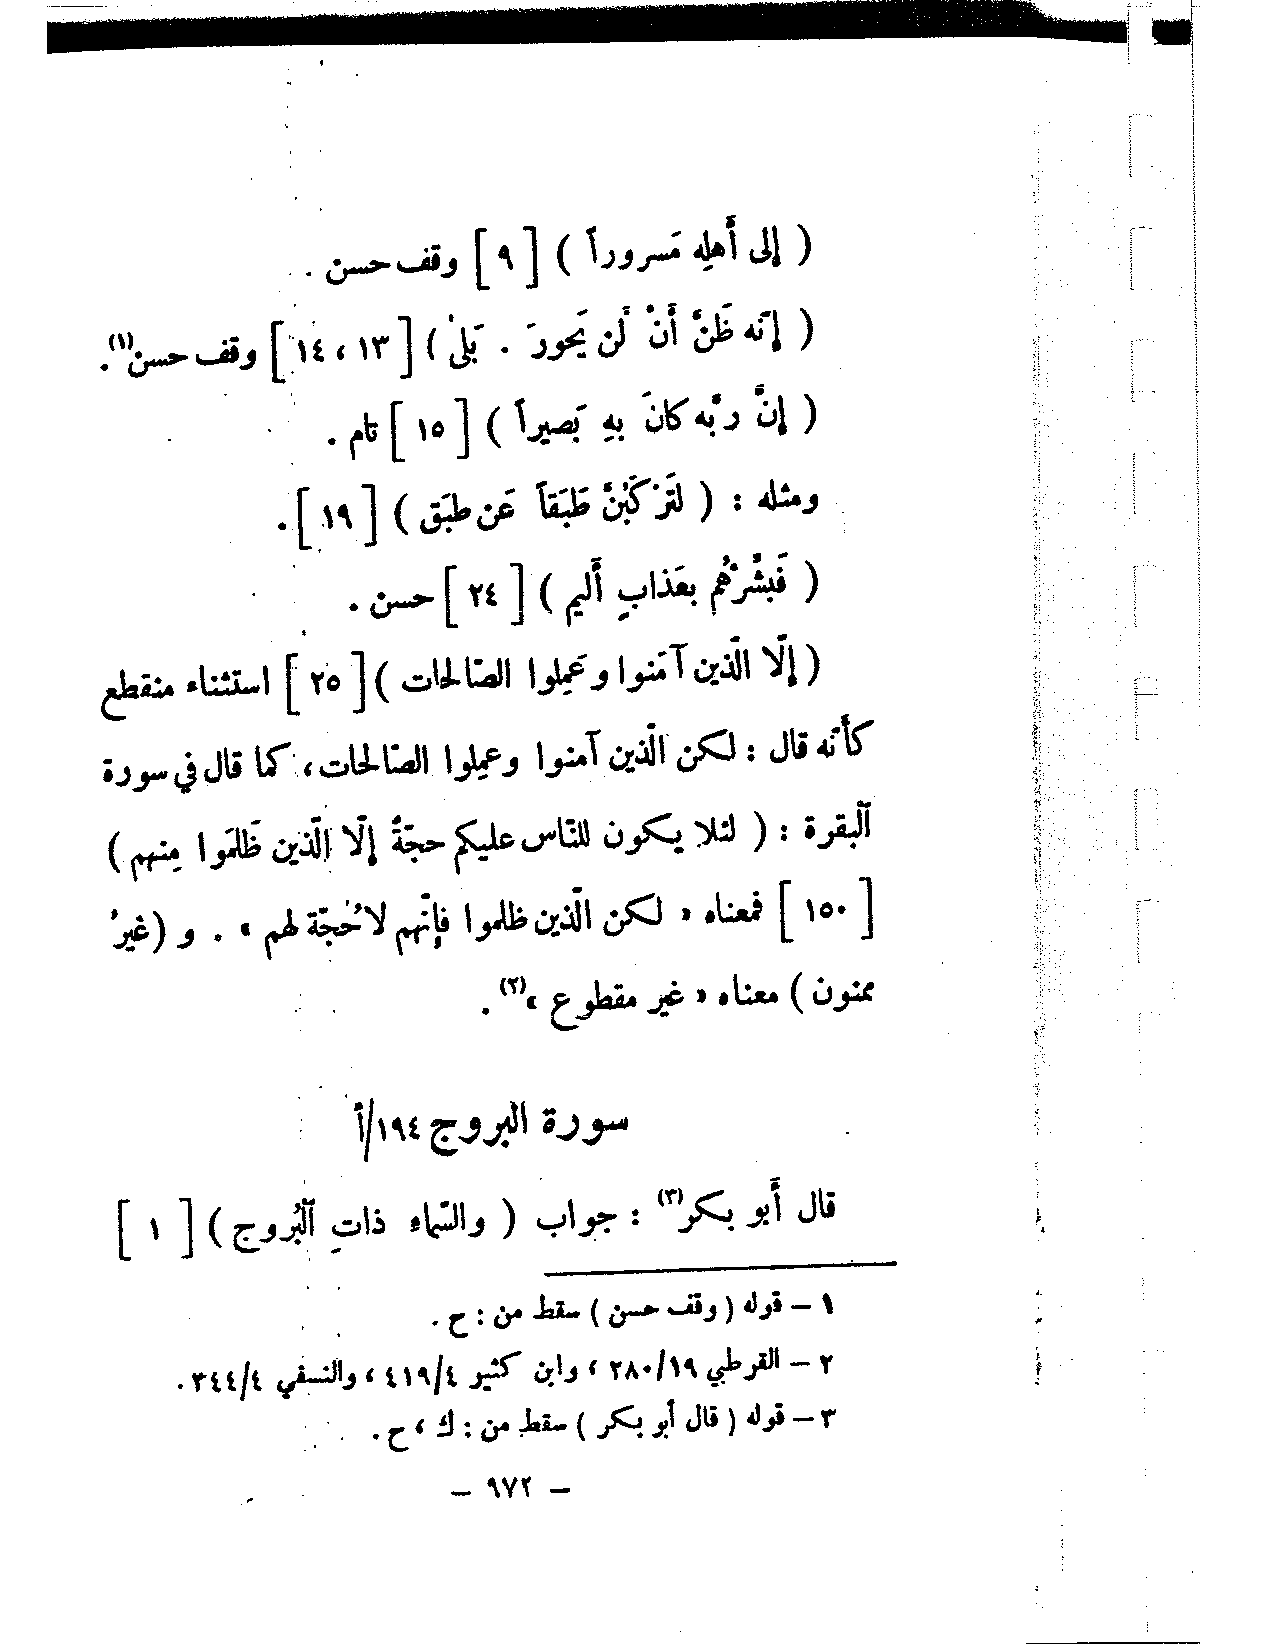 ( إلى أَهلِه مَسروراً ) [ ٩ ] وقف حسن .
( إنّه ظَنَّ أَنْ لَن يَحورَ . بَلىٰ ) [ ١٣ ، ١٤ ] وقف حسن(١).
( إنَّ ربّه كانَ بهِ بَصيراً ) [ ١٥ ] تام .
ومثله : ( لتَرْكَبُنَّ طَبَقاً عَن طبَق ) [ ١٩ ].
( فَبَشِّرْهُم بعَذابٍ أَليم ) [ ٢٤ ] حسن .
( إلّا الّذين آمَنوا وعَمِلوا الصّالحات ) [ ٢٥ ] استثناء منقطع
كأنّه قال : لكن الّذين آمنوا وعمِلوا الصّالحات، كما قال في سورة
ٱلبقرة : ( لئلا يكون للنّاس عليكم حجّةٌ إلّا الّذين ظَلَموا مِنهم )
[ ١٥٠ ] فمعناه « لكن الّذين ظلموا فإنّهم لا حُجّة لهم » . و (غيرُ
ممنون ) معناه « غير مقطوع »(٢) .
سورة البروج ١٩٤/أ
قال أَبو بكر(٣) : جواب ( والسّماء ذاتِ ٱلبُروج ) [ ١ ]
١ – قوله ( وقف حسن ) سقط من : ح .
٢ – القرطبي ٢٨٠/١٩ ، وابن كثير ٤١٩/٤ ، والنسفي ٣٤٤/٤ .
٣ – قوله ( قال أبو بكر ) سقط من : ك ، ح .
– ٩٧٢ –